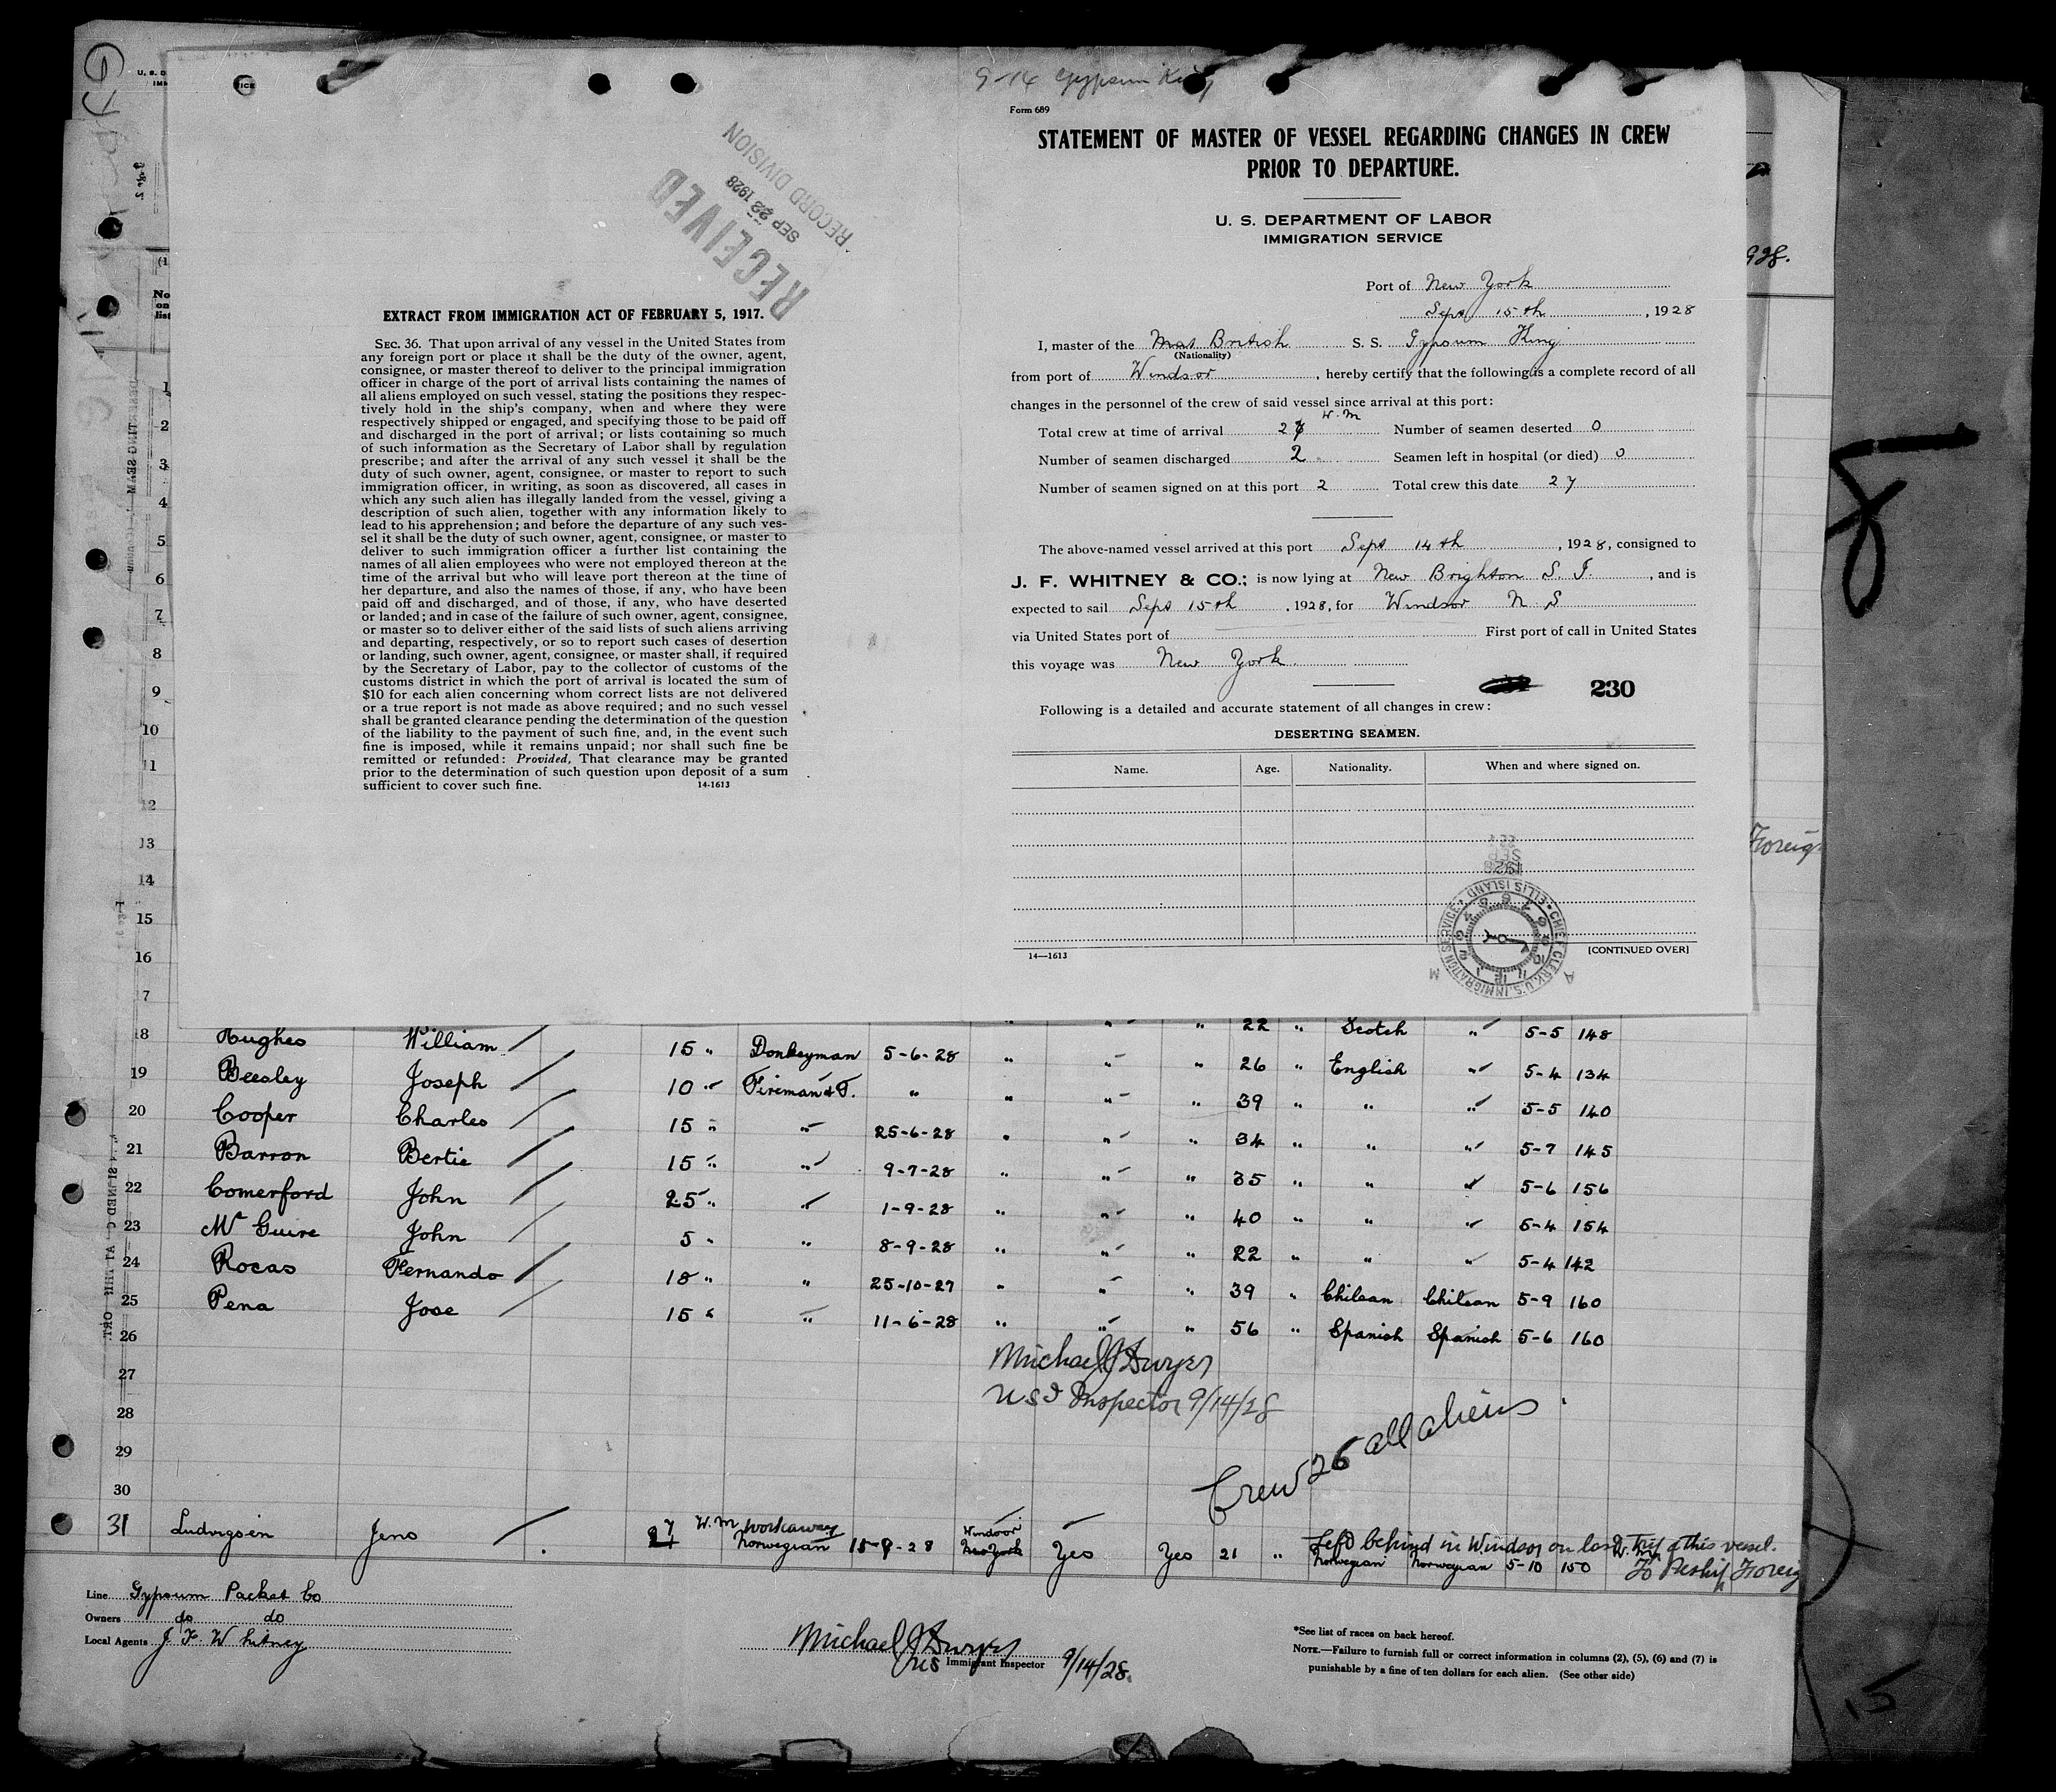 U. S. D
IMM
VICE
9-14 Gypsum King
Form 689
STATEMENT OF MASTER OF VESSEL REGARDING CHANGES IN CREW
PRIOR TO DEPARTURE.
U. S. DEPARTMENT OF LABOR
IMMIGRATION SERVICE
Port of New York
Sept 15th, 1928
I, master of the British S. S. Gypsum King
(Nationality)
from port of Windsor, hereby certify that the following is a complete record of all
changes in the personnel of the crew of said vessel since arrival at this port:
W.M
Total crew at time of arrival 27 Number of seamen deserted 0
Number of seamen discharged 2 Seamen left in hospital (or died) 0
Number of seamen signed on at this port 2 Total crew this date 27
The above-named vessel arrived at this port Sept 14th, 1928, consigned to
J. F. WHITNEY & CO.; is now lying at New Brighton S. I., and is
expected to sail Sept 15th, 1928, for Windsor N S
via United States port of First port of call in United States
this voyage was New York
230
Following is a detailed and accurate statement of all changes in crew:
DESERTING SEAMEN.
Name. Age. Nationality. When and where signed on.
14—1613 [CONTINUED OVER]
CHIEF CLERK, U.S. IMMIGRATION SERVICE ELLIS ISLAND
SEP
1928
A M
RECEIVED
SEP 22 1928
RECORD DIVISION
EXTRACT FROM IMMIGRATION ACT OF FEBRUARY 5, 1917.
SEC. 36. That upon arrival of any vessel in the United States from
any foreign port or place it shall be the duty of the owner, agent,
consignee, or master thereof to deliver to the principal immigration
officer in charge of the port of arrival lists containing the names of
all aliens employed on such vessel, stating the positions they respec-
tively hold in the ship's company, when and where they were
respectively shipped or engaged, and specifying those to be paid off
and discharged in the port of arrival; or lists containing so much
of such information as the Secretary of Labor shall by regulation
prescribe; and after the arrival of any such vessel it shall be the
duty of such owner, agent, consignee, or master to report to such
immigration officer, in writing, as soon as discovered, all cases in
which any such alien has illegally landed from the vessel, giving a
description of such alien, together with any information likely to
lead to his apprehension; and before the departure of any such ves-
sel it shall be the duty of such owner, agent, consignee, or master to
deliver to such immigration officer a further list containing the
names of all alien employees who were not employed thereon at the
time of the arrival but who will leave port thereon at the time of
her departure, and also the names of those, if any, who have been
paid off and discharged, and of those, if any, who have deserted
or landed; and in case of the failure of such owner, agent, consignee,
or master so to deliver either of the said lists of such aliens arriving
and departing, respectively, or so to report such cases of desertion
or landing, such owner, agent, consignee, or master shall, if required
by the Secretary of Labor, pay to the collector of customs of the
customs district in which the port of arrival is located the sum of
$10 for each alien concerning whom correct lists are not delivered
or a true report is not made as above required; and no such vessel
shall be granted clearance pending the determination of the question
of the liability to the payment of such fine, and, in the event such
fine is imposed, while it remains unpaid; nor shall such fine be
remitted or refunded: Provided, That clearance may be granted
prior to the determination of such question upon deposit of a sum
sufficient to cover such fine.
14-1613
928.
Foreig
(1
No
on
list
1
2
3
4
5
6
7
8
9
10
11
12
13
14
15
16
17
" " " 22 " Scotch " 5-5 148
18 Hughes William 15 " Donkeyman 5-6-28 " " " 26 " English " 5-4 134
19 Beesley Joseph 10 " Fireman & T. " " " " 39 " " " 5-5 140
20 Cooper Charles 15 " " 25-6-28 " " " 34 " " " 5-7 145
21 Barron Bertie 15 " " 9-7-28 " " " 35 " " " 5-6 156
22 Comerford John 25 " " 1-9-28 " " " 40 " " " 5-4 154
23 Mc Guire John 5 " " 8-9-28 " " " 22 " " " 5-4 142
24 Rocas Fernando 18 " " 25-10-27 " " " 39 " Chilean Chilean 5-9 160
25 Pena Jose 15 " " 11-6-28 " " " 56 " Spanish Spanish 5-6 160
26
Michael J Dwyer
27
US Inspector 9/14/28
28
Crew 26 all aliens
29
30
W.M workaway Windsor Left behind in Windsor on last trip of this vessel.
31 Ludvigsen Jens Norwegian 15-9-28 New York Yes Yes 21 " Norwegian Norwegian 5-10 150 To Reship Foreig
Line Gypsum Packet Co
Owners do do
Local Agents J. F. Whitney
Michael J Dwyer
US Immigrant Inspector 9/14/28.
*See list of races on back hereof.
NOTE.—Failure to furnish full or correct information in columns (2), (5), (6) and (7) is
punishable by a fine of ten dollars for each alien. (See other side)
15